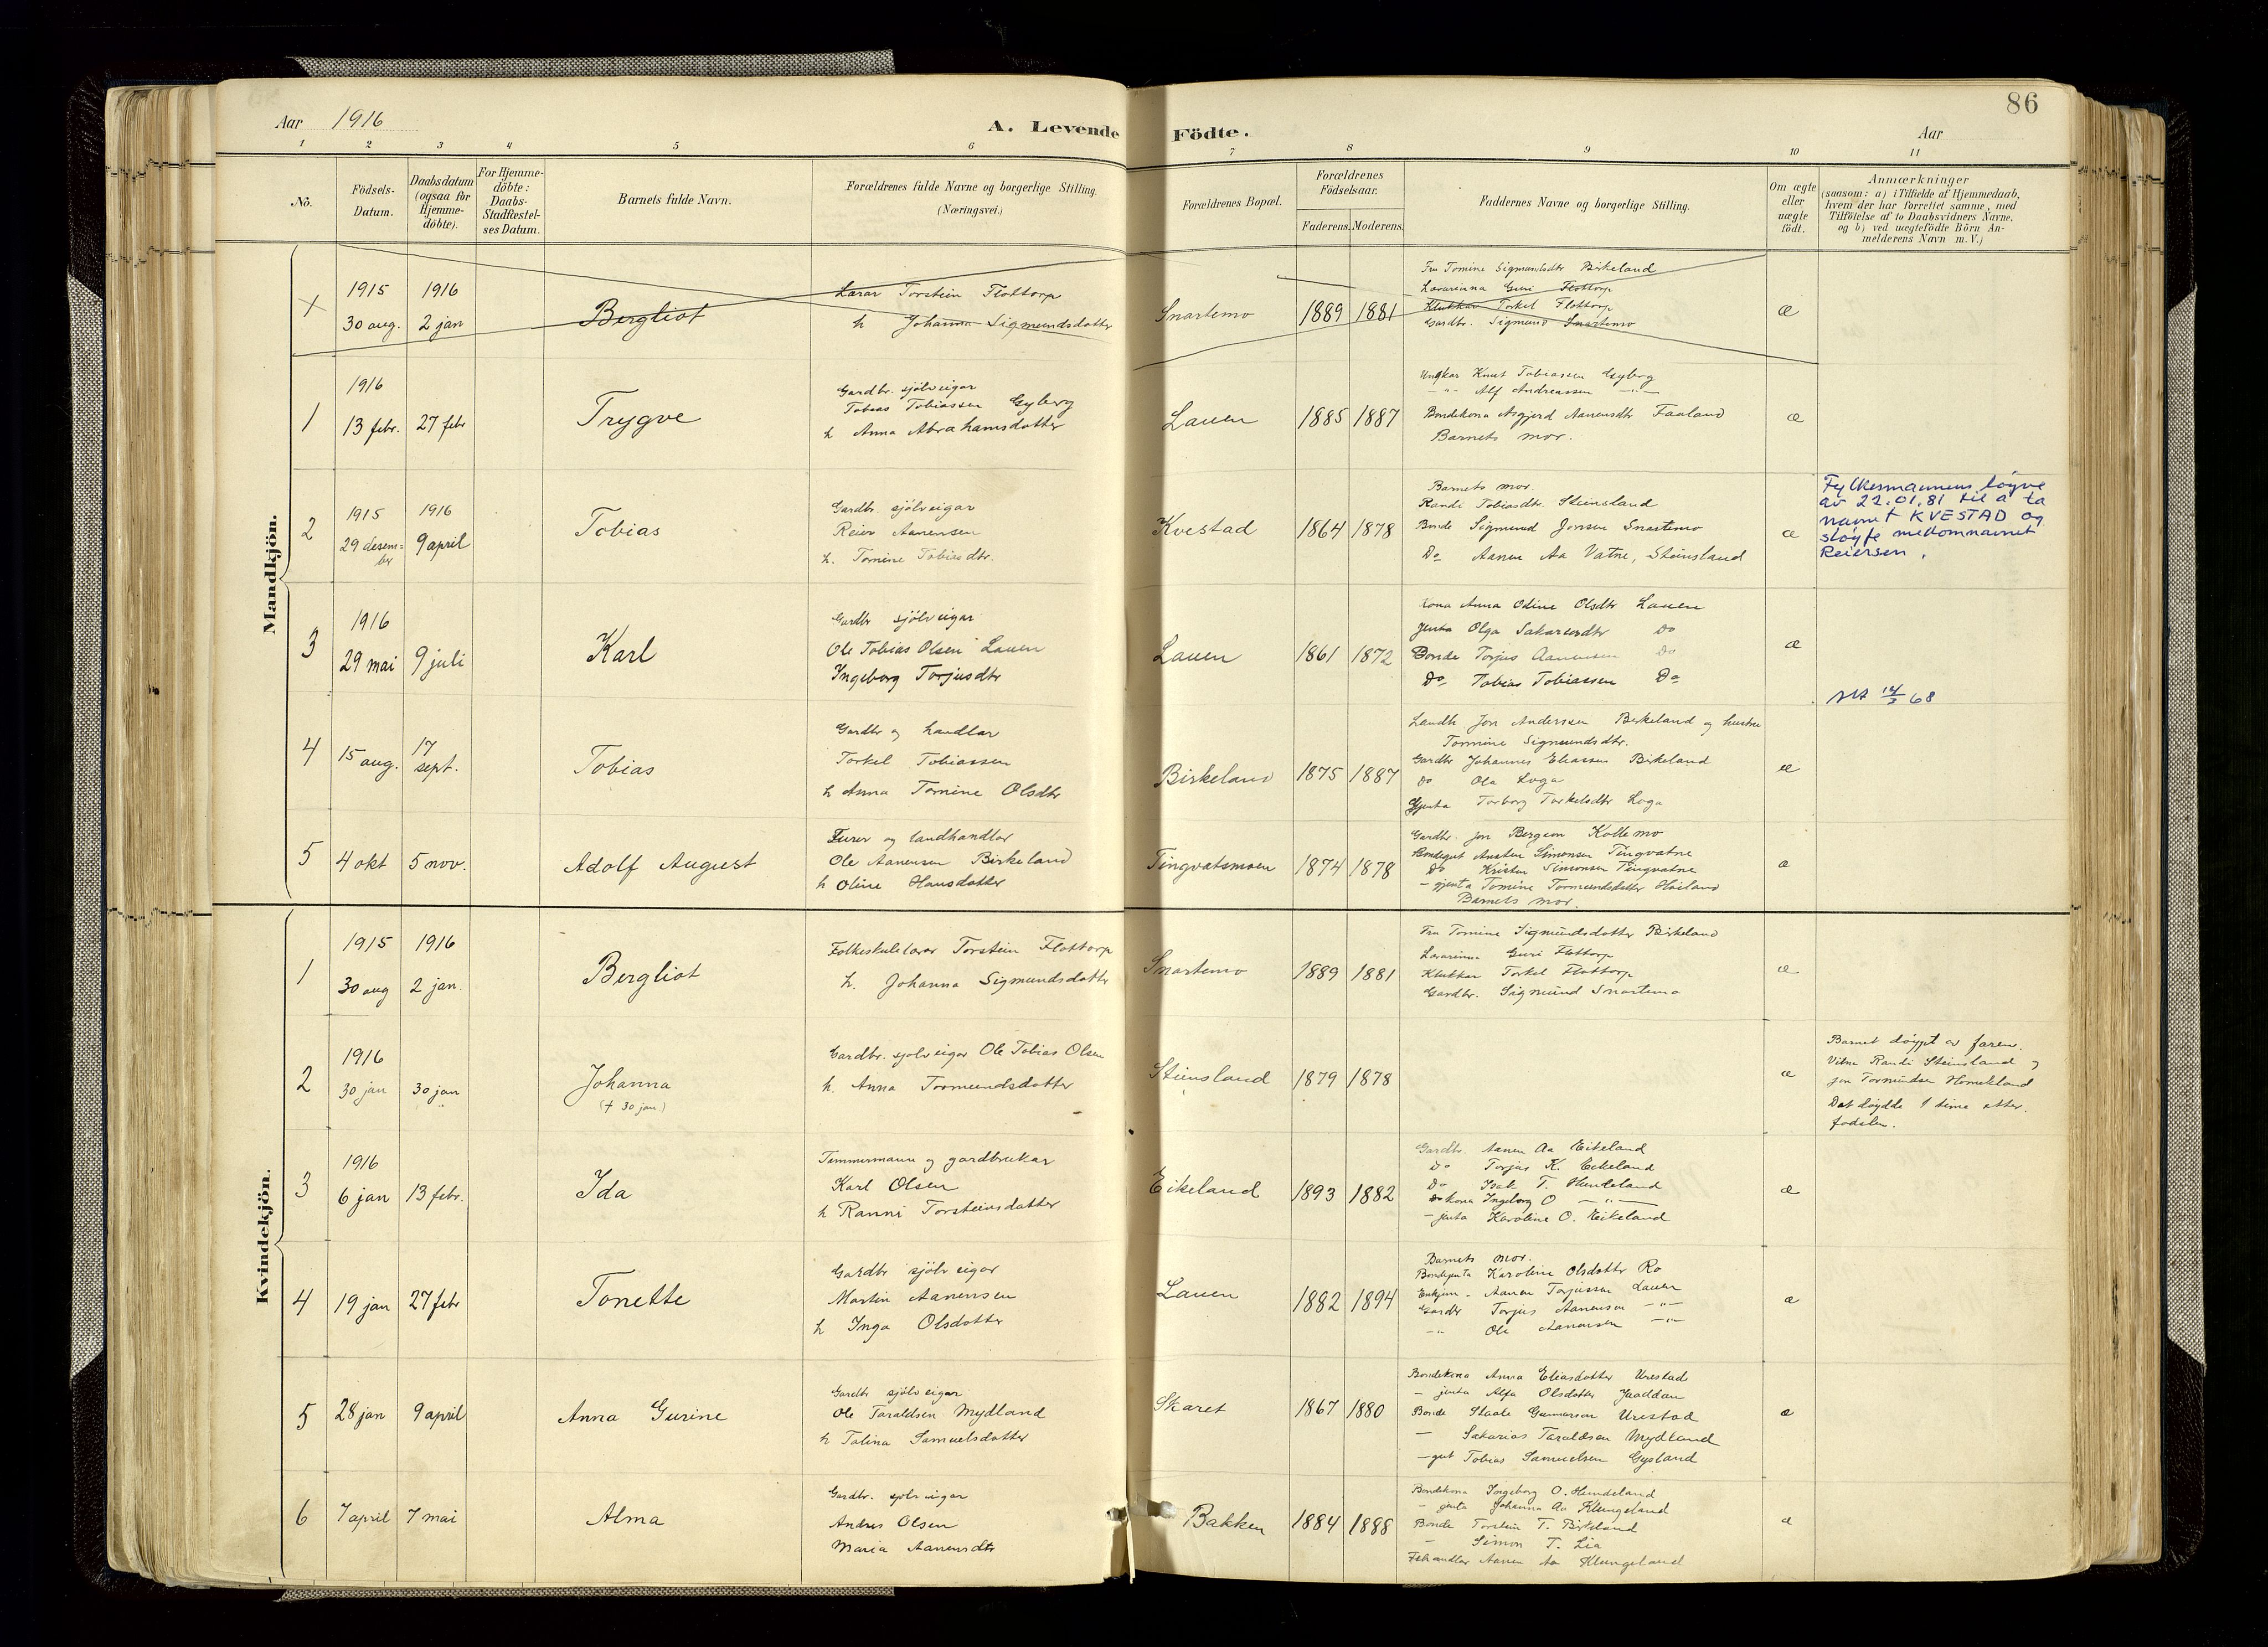 86
Aar 1916
A. Levende Födte.
Aar
1 2 3 4 5 6 7 8 9 10 11
No.
Födsels-Datum.
Daabsdatum (ogsaa for Hjemme-döbte).
For Hjemme-döbte: Daabs-Stadfæstel-ses Datum.
Barnets fulde Navn.
Forældrenes fulde Navne og borgerlige Stilling. (Næringsvei.)
Forældrenes Bopæl.
Forældrenes Födselsaar.
Faderens. Moderens.
Faddernes Navne og borgerlige Stilling.
Om ægte eller uægte födt.
Anmærkninger
(saasom: a) i Tilfælde af Hjemmedaab,
hvem der har forrettet samme, med
Tilföielse af to Daabsvidners Navne.
og b) ved uægtefödte Börn An-
melderens Navn m. V.)
Mandkjön.
1
1915
30 aug.
1916
2 jan
Bergliot
Lærar Torstein Flottorp
h Johanna Sigmundsdotter
Snartemo
1889 1881
Fru Tomine Sigmundsdtr Birkeland
Lærarinna Guri Flottorp
Klukkar Torkel Flottorp
Gardbr. Sigmund Snartemo
æ
1
1916
13 febr.
27 febr
Trygve
Gardbr. sjölveigar
Tobias Tobiassen Gyberg
h Anna Abrahamsdotter
Lauen
1885 1887
Ungkar Knut Tobiassen Gyberg
-"- Alf Andreassen -"-
Bondekona Asgjerd Aanensdtr Faaland
Barnets mor.
æ
2
1915
29 desem=
ber
1916
9 april
Tobias
Gardbr sjölveigar
Reier Aanensen
h. Tomine Tobiasdtr.
Kvestad
1864 1878
Barnets mor.
Randi Tobiasdt. Steinsland
Bonde Sigmund Jensen Snartemo
Do Aanen Aa Vatne, Steinsland
æ
Fylkesmannens løyve
av 22.01.81 til å ta
navnet KVESTAD og
sløyfe mellomnavnet
Reiersen.
3
1916
29 mai
9 juli
Karl
Gardbr sjölveigar
Ole Tobias Olsen Lauen
Ingeborg Torjusdtr
Lauen
1861 1872
Kona Anna Odine Olsdtr Lauen
Jenta Olga Sakariasdtr Do
Bonde Torjus Aanensen Do
Do Tobias Tobiassen Do
æ
4
15 aug.
17
sept.
Tobias
Gardbr og handlar
Torkel Tobiassen
h Anna Tomine Olsdtr
Birkeland
1875 1887
Landh Jon Andersen Birkeland og hustru
Tomine Sigmundsdtr.
Gardbr Johannes Eliassen Birkeland
Do Ola Loga
Gjenta Torborg Torkelsdtr Loga
æ
68
5
4 okt
5 nov.
Adolf August
Furer og landhandlar
Ole Aanensen Birkeland
h Oline Hansdotter
Tingvatsmoen
1874 1878
Gardbr. Jon Bergson Kollemo
Bondegut Austen Simonsen Tingvatne
Do Kristen Simonsen Tingvatne
- gjenta Tomine Tormundsdotter Høiland
Barnets mor.
æ
Kvindekjön.
1
1915
30 aug
1916
2 jan.
Bergliot
Folkeskulelærar Torstein Flottorp
h. Johanna Sigmundsdotter
Snartemo
1889 1881
Fru Tomine Sigmundsdotter Birkeland
Lærarinna Guri Flottorp
Klukkar Torkel Flottorp
Gardbr. Sigmund Snartemo
æ
2
1916
30 jan
30 jan
Johanna
(† 30 jan)
Gardbr. sjolveigar Ole Tobias Olsen
h. Anna Tormundsdotter
Steinsland
1879 1878
æ
Barnet døypt av faren.
Vitne Randi Steinsland og
Jon Tormundsen Homekland
Det døydde 1 time etter
fødslen.
3
1916
6 jan
13 febr.
Ida
Timmermann og gardbrukar
Karl Olsen
h Ranni Torsteinsdatter
Eikeland
1893 1882
Gardbr. Aanen Aa Eikeland
Do Torjus K. Eikeland
Do Isak T. Hundeland
Do kona Ingeborg O -"-
- jenta Karoline O. Eikeland
æ
4
19 jan
27 febr
Tonette
Gardbr sjölveigar
Martin Aanensen
h Inga Olsdotter
Lauen
1882 1894
Barnets mor.
Bondejenta Karoline Olsdotter Ro
Aanen Torjussen Lauen
Gardbr Torjus Aanensen -"-
-"- Ole Aanensen -"-
æ
5
28 jan
9 april
Anna Gurine
Gardbr sjölveigar
Ole Taraldsen Mydland
h Talina Samuelsdotter
Skaret
1867 1880
Bondekona Anna Eliasdotter Urestad
- jenta Alfa Olsdotter Jaaddan
Bonde Staale Gunnarson Urestad
- Sakarias Taraldsen Mydland
- gut Tobias Samuelsen Gysland
æ
6
7 april
7 mai
Alma
Gardbr. sjolveigar
Andres Olsen
Maria Aanensdtr
Bakken
1884 1888
Bondekona Ingeborg O. Hundeland
- jenta Johanna Aa Klungeland
Bonde Torstein T. Birkeland
- Simon T. Lia
Fehandlar Aanen Aa Klungeland
æ